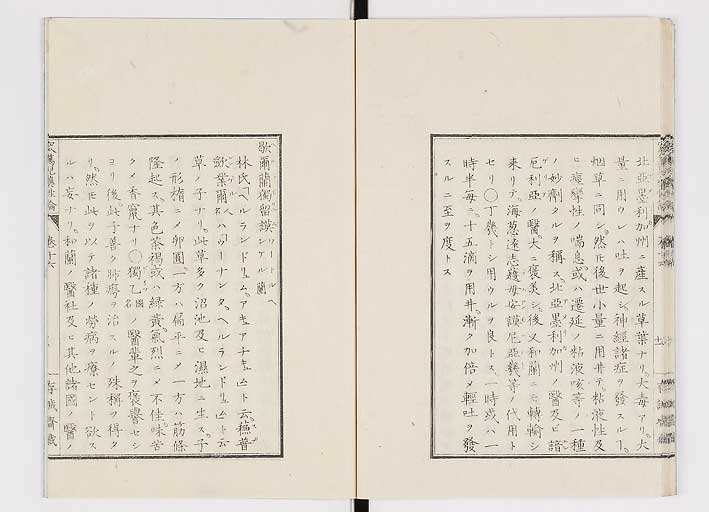 北亞墨利加州ニ產スル草葉ナリ。大毒アリ。大
量ニ用ウレハ吐ヲ起シ神經諸症ヲ發スルヿ。
烟草ニ同シ。然𪜈後世小量ニ用井テ。粘液性及
ヒ痙攣性ノ喘息。或ハ遷延ノ粘液咳等ノ一種
ノ妙劑タルヲ稱ス。北亞墨利加州ノ醫及ビ諳
厄利亞ノ醫大ニ褒美シ。後又和蘭ニモ轉輸シ
來リテ。海葱遠志
安謨尼亞
等ノ代用ト
セリ〇丁幾トシ用ウルヲ良トス。一時或ハ一
時半每ニ。十五滴ヲ用井。漸ク加倍メ輕吐ヲ發
スルニ至ヲ度トス
歇爾蘭獨留謨
ワートルヘンケル蘭
林氏「ヘルランドリュム。アキュアチキュム」ト云。蘇普
歛葉爾人名ハ「ヲーナンタ。ヘルランドリュム」ト云
草ノ子ナリ。此草多ク沼池及ヒ濕地ニ生ス。子
ノ形楕ニメ卵圓。一方ハ扁平ニメ一方ハ筋條
隆起ス。其色茶褐或ハ綠黃。氣烈ニメ不佳。味苦
クメ香竄ナリ〇獨乙國名ノ醫輩之ヲ褒譽セシ
ヨリ後。此子善ク肺癆ヲ治スルノ殊稱ヲ得タ
リ。然𪜈此ヲ以テ諸種ノ勞病ヲ療セント欲ス
ルハ妄ナリ。和蘭ノ醫社及ヒ其他諸國ノ醫ノ
卷十六
存誠齋藏